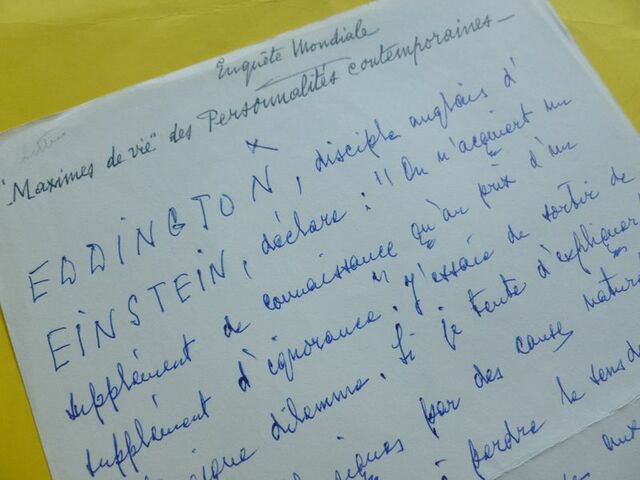 Enquête Mondiale
"Maximes de vie" des Personnalités contemporaines -
x
EDDINGTON, disciple anglais d'
EINSTEIN, déclare : "On n'acquiert un
supplément de connaissance qu'au prix d'un
supplément d'ignorance". J'essaie de sortir de
dilemme. Si je tente d'expliquer
par des causes
perdre le sens
aux